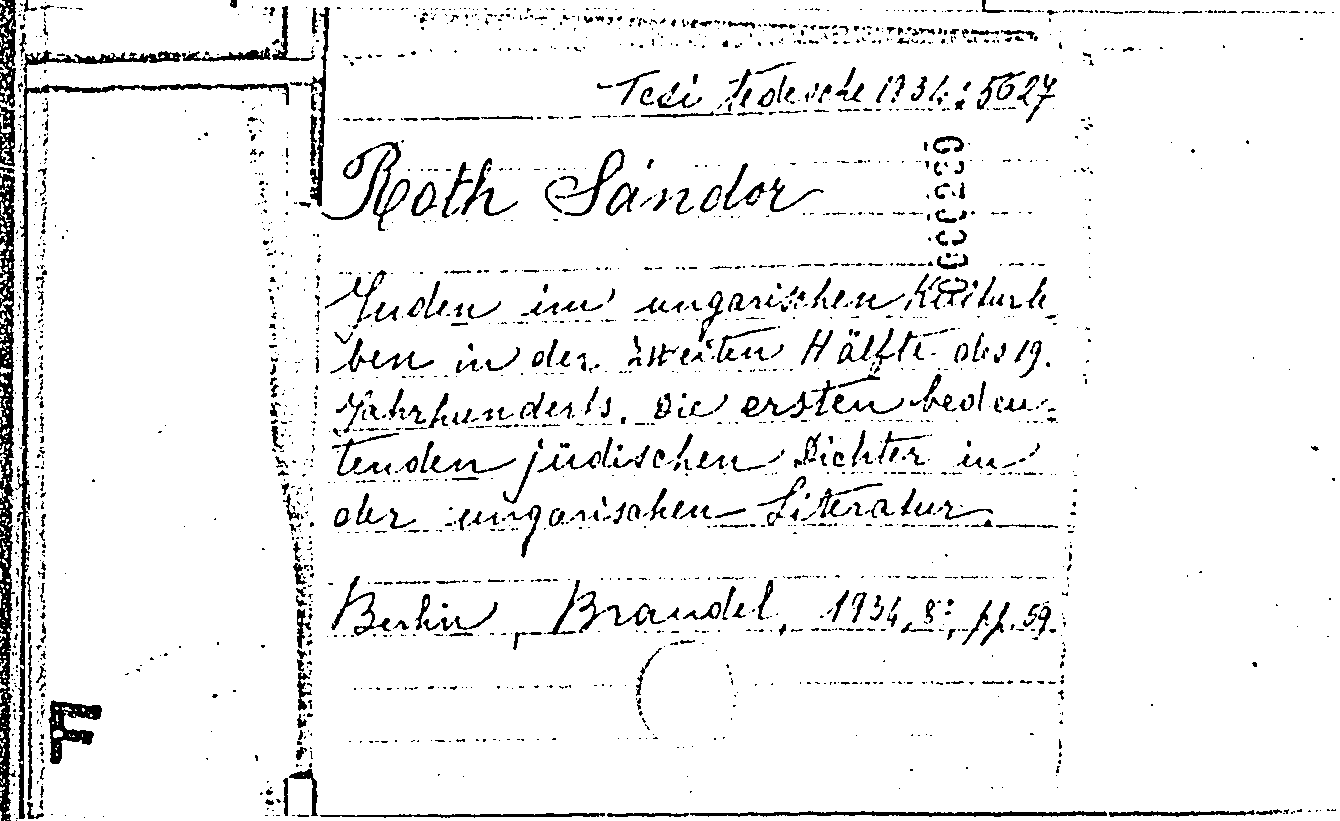 Tesi tedesche 1934: 5627
Roth Sándor
Juden im ungarischen Kulturle
ben in der zweiten Hälfte des 19.
Jahrhunderts. Die ersten bedeu-
tenden jüdischen Dichter in
der ungarischen Literatur.
Berlin, Brandel, 1934, 8°, pp. 59.
F